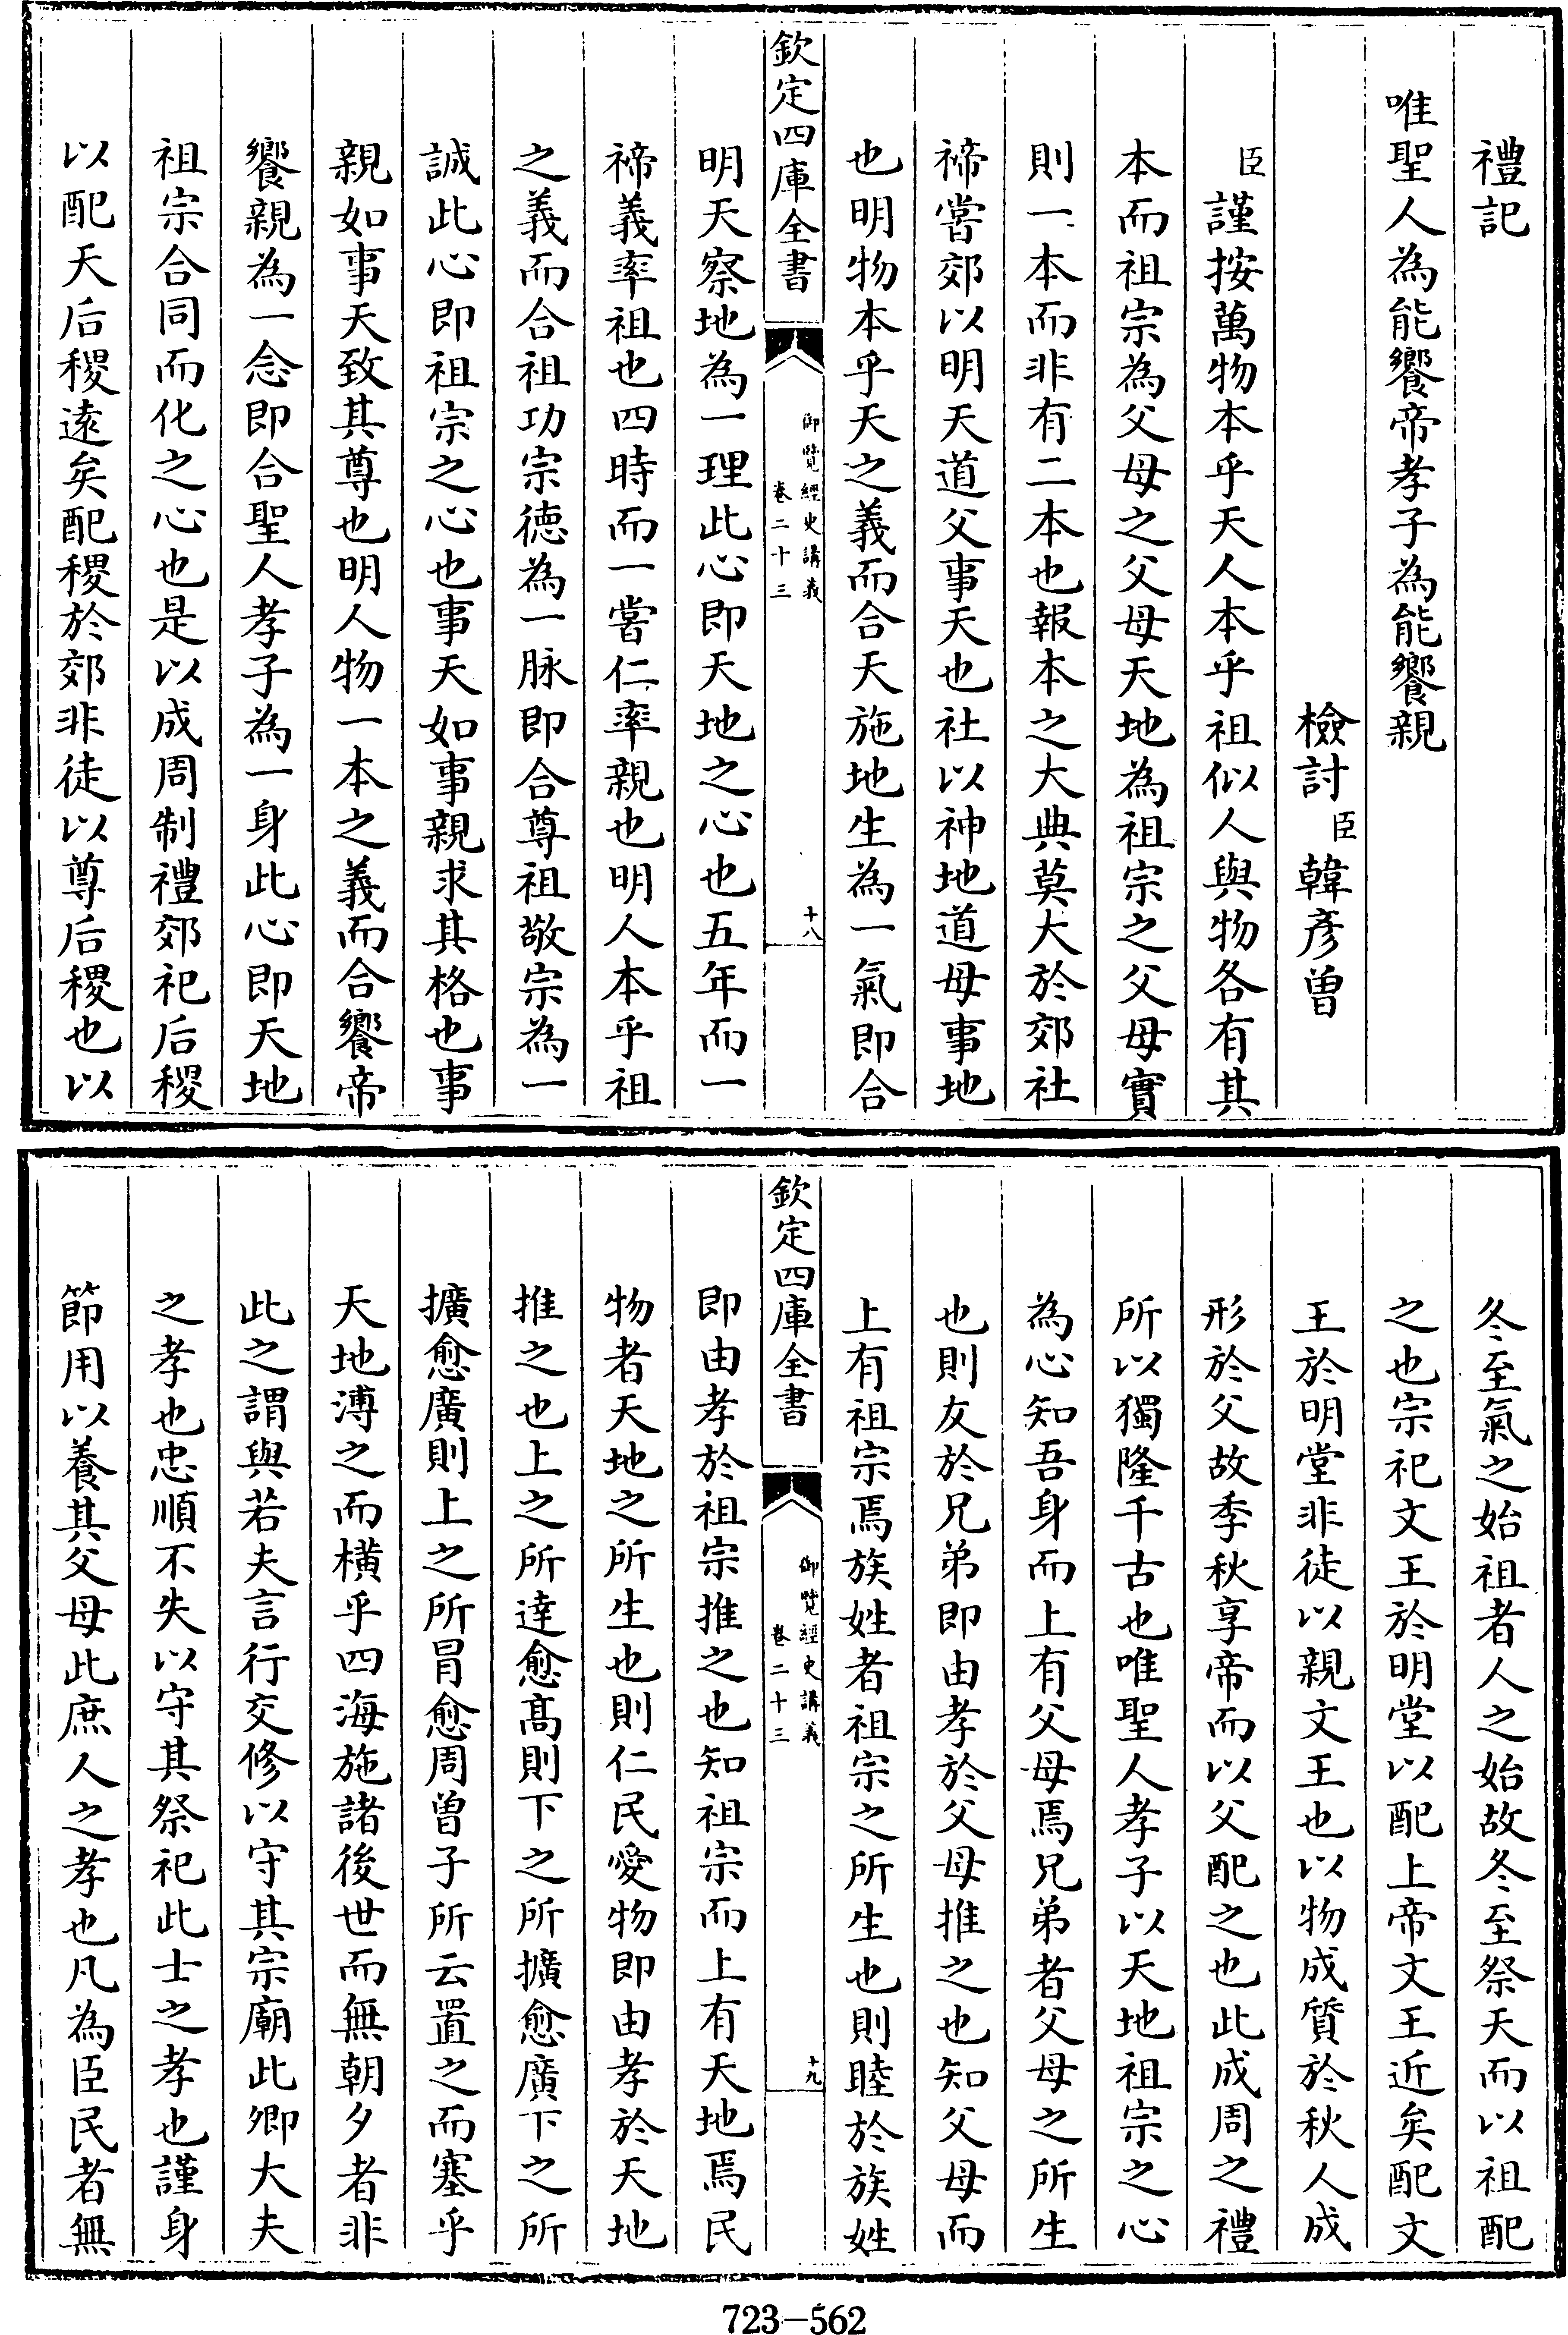 禮記
唯聖人為能饗帝孝子為能饗親
檢討臣韓彥曽
臣謹按萬物本乎天人本乎祖似人與物各有其
本而祖宗為父母之父母天地為祖宗之父母實
則一本而非有二本也報本之大典莫大於郊社
禘嘗郊以明天道父事天也社以神地道母事地
也明物本乎天之義而合天施地生為一氣即合
欽定四庫全書
御覽經史講義
卷二十三
十八
明天察地為一理此心即天地之心也五年而一
禘義率祖也四時而一嘗仁率親也明人本乎祖
之義而合祖功宗徳為一脉即合尊祖敬宗為一
誠此心即祖宗之心也事天如事親求其格也事
親如事天致其尊也明人物一本之義而合饗帝
饗親為一念即合聖人孝子為一身此心即天地
祖宗合同而化之心也是以成周制禮郊祀后稷
以配天后稷逺矣配稷於郊非徒以尊后稷也以
冬至氣之始祖者人之始故冬至祭天而以祖配
之也宗祀文王於明堂以配上帝文王近矣配文
王於明堂非徒以親文王也以物成質於秋人成
形於父故季秋享帝而以父配之也此成周之禮
所以獨隆千古也唯聖人孝子以天地祖宗之心
為心知吾身而上有父母焉兄弟者父母之所生
也則友於兄弟即由孝於父母推之也知父母而
上有祖宗焉族姓者祖宗之所生也則睦於族姓
欽定四庫全書
御覽經史講義
卷二十三
十九
即由孝於祖宗推之也知祖宗而上有天地焉民
物者天地之所生也則仁民愛物即由孝於天地
推之也上之所達愈髙則下之所擴愈廣下之所
擴愈廣則上之所冐愈周曽子所云置之而塞乎
天地溥之而橫乎四海施諸後世而無朝夕者非
此之謂與若夫言行交修以守其宗廟此卿大夫
之孝也忠順不失以守其祭祀此士之孝也謹身
節用以養其父母此庶人之孝也凡為臣民者無
723-562